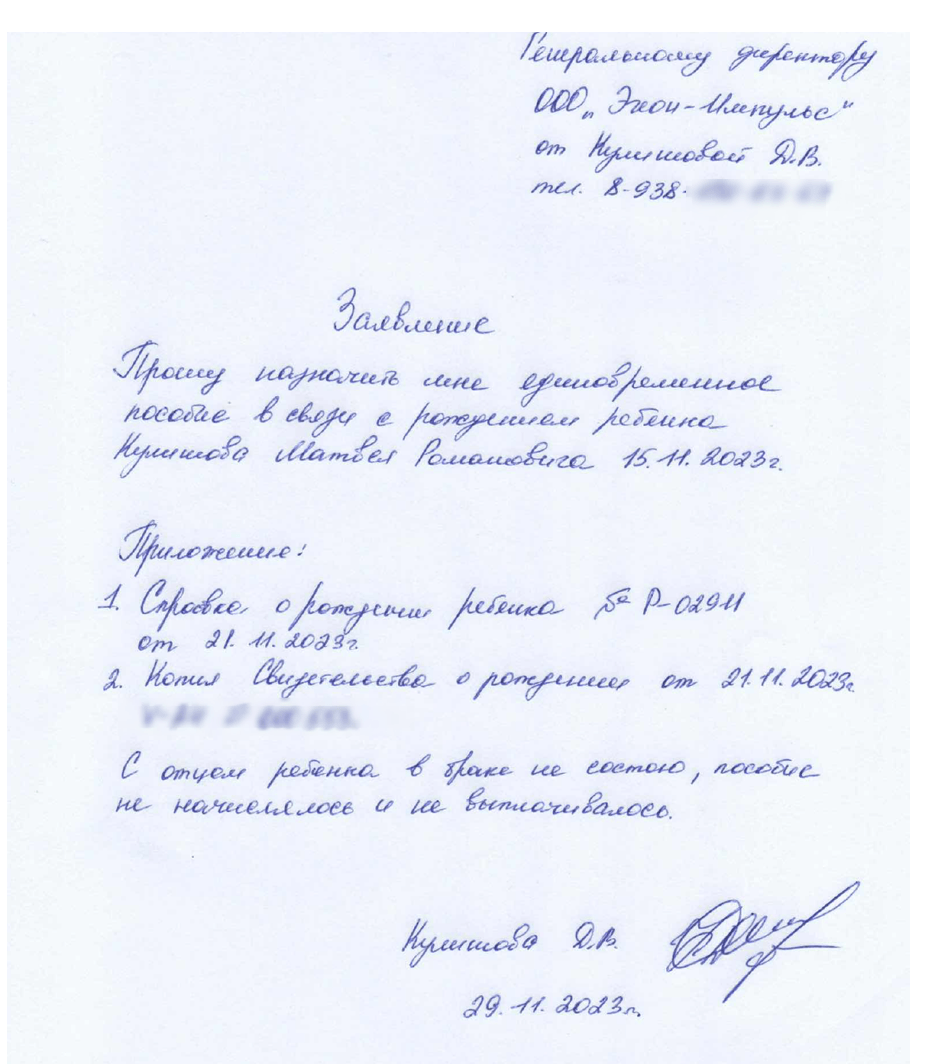 Генеральному директору
ООО „Экон-Импульс"
от Кулишовой Д.В.
тел. 8-938-
Заявление
Прошу назначить мне единовременное
пособие в связи с рождением ребенка
Кулишова Матвея Романовича 15.11.2023г.
Приложение:
1. Справка о рождении ребенка № Р-02911
от 21.11.2023г.
2. Копия Свидетельства о рождении от 21.11.2023г.
С отцом ребенка в браке не состою, пособие
не начислялось и не выплачивалось.
Кулишова Д.В.
29.11.2023г.